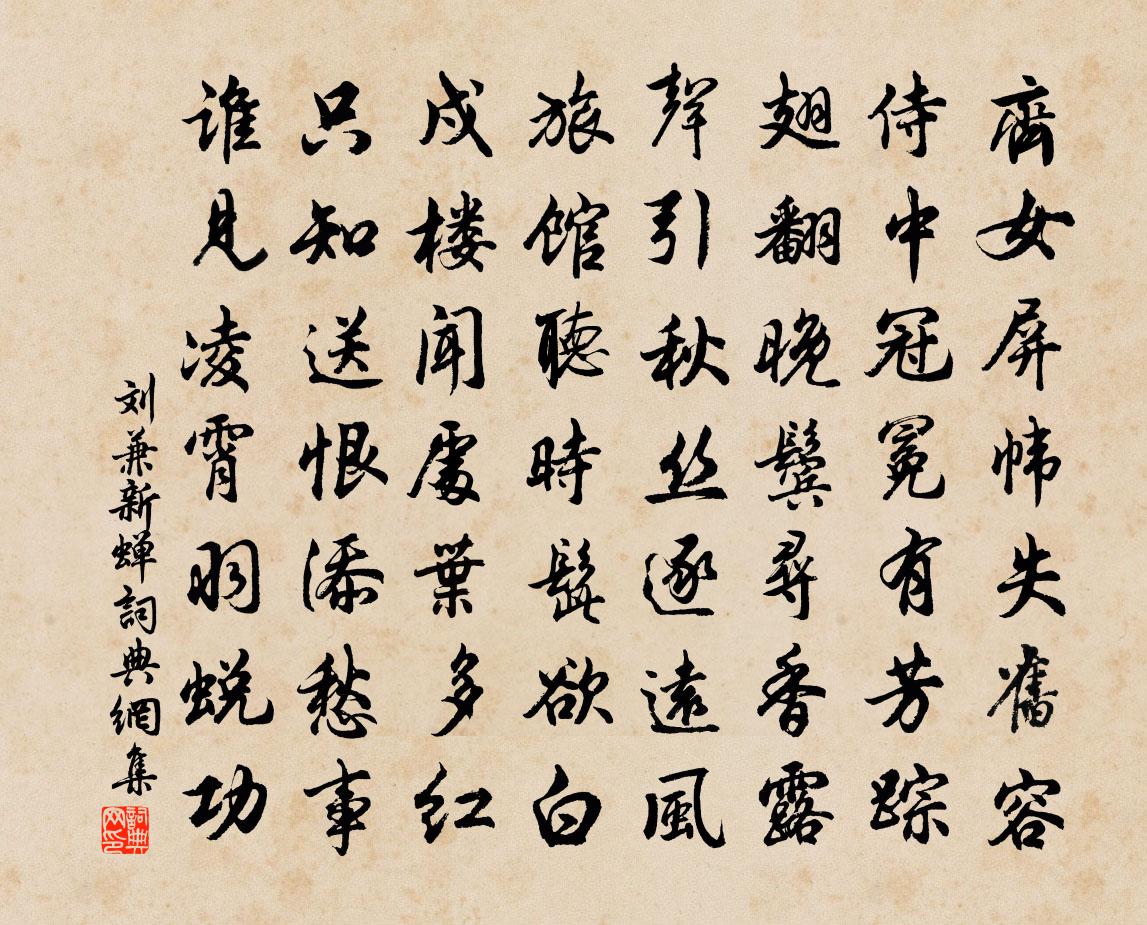 齊女屏幃失舊容
侍中冠冕有芳踪
翅翻晚鬢尋香露
聲引秋丝逐遠風
旅館聽時髭欲白
戍楼聞處葉多红
只知送恨添愁事
谁見凌霄羽蜕功
刘兼新蝉詞典網集
詞典网印